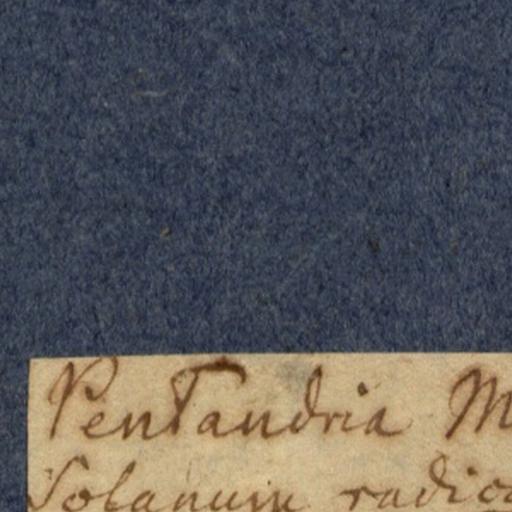 Pentandria M
Solanum radic